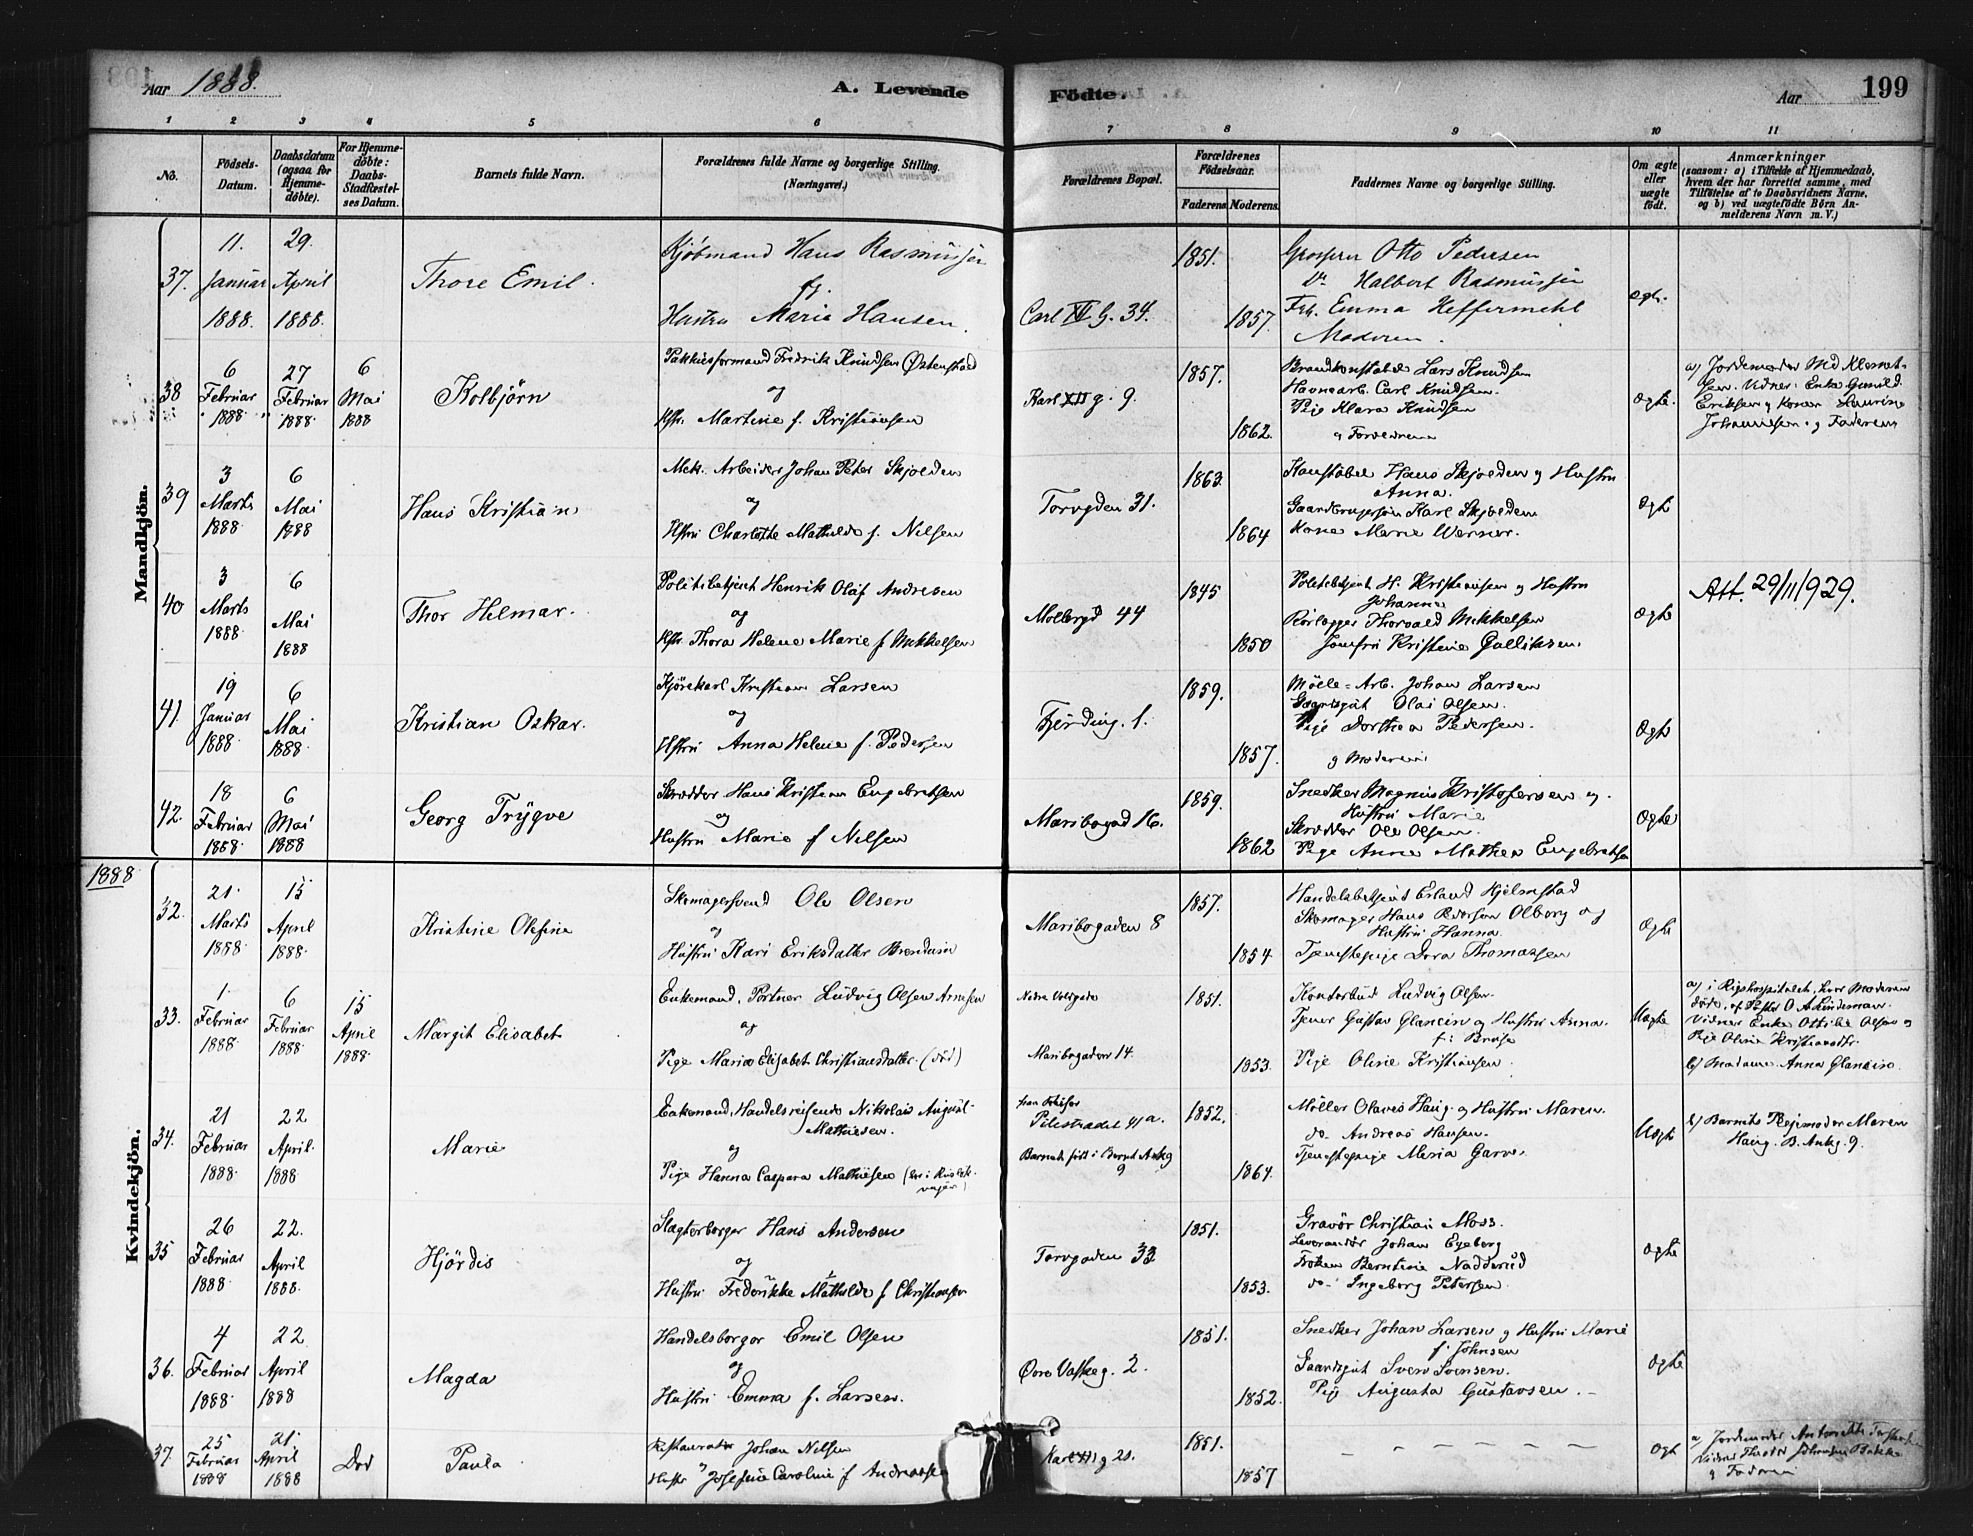 Aar 1888.
A. Levende Födte.
Aar
199
1 2 3 4 5 6 7 8 9 10 11
No.
Födsels-Datum.
Daabsdatum (ogsaa for Hjemmedöbte).
For Hjemmedöbte: Daabs-Stadfæstelses Datum.
Barnets fulde Navn.
Forældrenes fulde Navne og borgerlige Stilling. (Næringsvei.)
Forældrenes Bopæl.
Forældrenes Födselsaar.
Faderens. Moderens.
Faddernes Navne og borgerlige Stilling.
Om ægte eller uægte födt.
Anmærkninger
(saasom: a) i Tilfælde af Hjemmedaab, hvem der har forrettet samme, med Tilföielse af to Daabsvidners Navne, og b) ved uægtefödte Börn Anmelderens Navn m. V.)
Mandkjön.
37. 11. Januar 1888. 29. April 1888.
Thore Emil.
Kjöbmand Hans Rasmussen
og
Hustru Marie Hansen.
Carl XII G. 34.
1851. 1857.
Otto Pedersen
Do Halbert Rasmussen
Frk. Emma Heffermehl
Moderen.
ægte.
38 6 Februar 1888 27 Februar 1888. 6 Mai 1888
Kolbjörn
Pakhusformand Fredrik Knudsen Østenstad
og
Hstr. Martine f. Kristiansen
Karl XII g. 9.
1857. 1862.
Brandkonstabel Lars Knudsen
Havnearb. Carl Knudsen.
Pige Klara Knudsen
og Forældrene
Ægte.
a) Jordemoder
Vidner: Enke Gunild
Eriksen og Kone Laurine
Johannesen og Faderen
39 3 Marts 1888 6 Mai 1888
Hans Kristian
Mek. Arbeider Johan Peter Skjolden
og
Hstru Charlotte Mathilde f. Nelsen
Torvgden 31.
1863. 1864
Konstabel Hans Skjolden og Hustru
Anna.
Karl Skjolden
Kone Marie Werner.
Ægte
40 3 Marts 1888. 6 Mai 1888
Thor Helmar.
Politibetjent Henrik Olaf Andresen
og
Hstr Thora Helene Marie f Mikkelsen
Møllergd 44
1845 1850
Politibetjent H. Kristiansen og Hustru
Johanne
Rörlægger Thorvald Mikkelsen
Jomfru Kristine Gulliksen.
Ægte
Att. 29/11/929.
41. 19 Januar 1888. 6 Mai 1888.
Kristian Oskar.
Kjörekarl Kristian Larsen
og
Hstru Anna Helene f. Pedersen
Fjerding. 1.
1859. 1857.
Mölle-Arb. Johan Larsen
Gaardsgut Olai Olsen.
Pige Dorthea Pedersen.
og Moderen
Ægte
42. 18 Februar 1888. 6 Mai 1888
Georg Trygve
Skrædder Hans Kristian Engebretsen
og
Hustru Marie f Nelsen
Maribogad 16.
1859. 1862
Snedker Magnus Kristofersen og
Hustru Marie
Skrædder Ole Olsen.
Pige Anne Mathea Engebretsen
Ægte
1888
Kvindekjön.
32. 21. Marts 1888. 15 April 1888.
Kristine Olefine
Skomagersvend Ole Olsen
og
Hustru Kari Eriksdatter
Maribogaden 8
1857. 1854
Handelsbetjent Erland Hjelmstad
Skomager Hans Pedersen Olborg og
Hustru Hanna.
Tjenestepige Dora Thomassen
Ægte
33. 1. Februar 1888. 6 Februar 1888. 15 April 1888.
Margit Elisabet
Enkemand, Portner Ludvig Olsen Arnesen
og
Pige Marie Elisabet Christiansdatter (död)
Nedre Voldgade
Maribogaden 14.
1851. 1853.
Kontorbud Ludvig Olsen.
Tjener Gustav Glancin og Hustru Anna.
Pige Oline Kristiansen.
Uægte
a) i Rigshospitalet, hvor Moderen
döde, af Pastor O. A. Lindeman.
Vidner Enke Ottilie Olsen og
Pige Oline Kristiansdtr.
b) Madame Anna Glancin.
34. 21 Februar 1888 22 April 1888
Marie
Enkemand, Handelsreisende Nikolai August
Mathiesen.
og
Pige Hanna Caspara Mathiesen
Pilestrædet 41a.
Barnet födt i Bernt Ankg 9
1852. 1864.
Möller Olaves Haug og Hustru Maren
do. Andreas Hansen.
Tjenestepige Maria Garve.
Uægte
b) Barnets Plejemoder Maren
Haug. B. Ankg. 9.
35 26 Februar 1888 22. April 1888.
Hjördis
Slagterborger Hans Andersen
og
Hustru Frederikke Mathilde f Christiansen
Torvgaden 33
1851. 1853.
Gravör Christian Moss.
Leverandör Johan Egeberg
Fröken Berntine Nadderud
do. Ingeborg Petersen.
Ægte
36. 4 Februar 1888. 22 April 1888
Magda
Handelsborger Emil Olsen
og
Hustru Emma f. Larsen.
Øvre Vaskeg. 2.
1851. 1852.
Snedker Johan Larsen og Hustru Marie
f. Johnsen
Gaardsgut Sven Svensen.
Pige Augusta Gustavsen.
Ægte
37. 25 Februar 1888 21. April 1888 Död
Paula
Restauratör Johan Nelsen
og
Hustr Josefine Caroline f Andreassen
Karl XII g 20.
1851. 1857
Ægte
a) Jordemoder
og Faderen